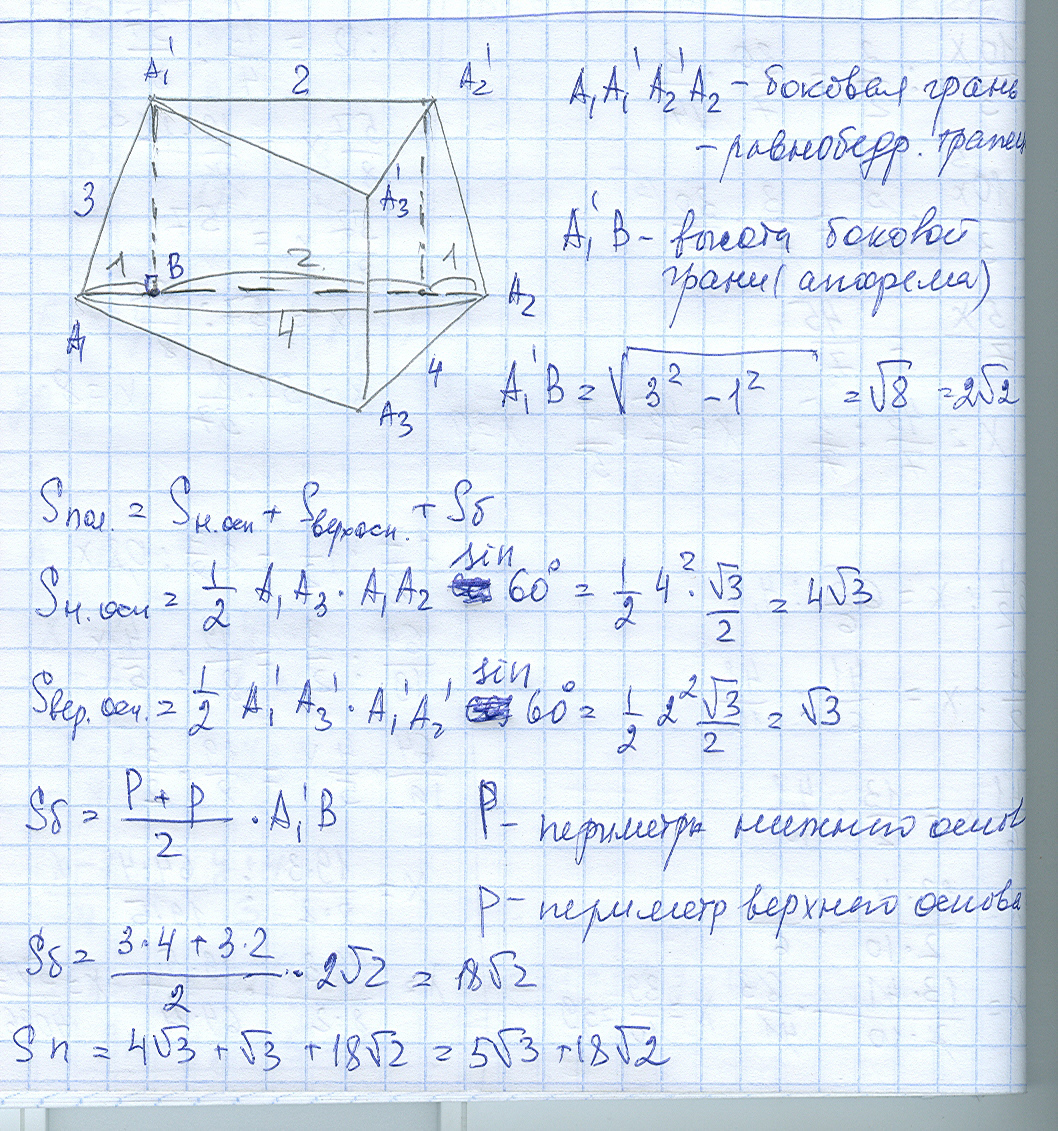 A₁' 2 A₂'
A₁A₁'A₂'A₂ – боковая грань
– равнобедр. трапец
3 A₃'
1 B 2 1
A₁'B – высота боковой
грани (апофема)
A₁ 4 A₂
4
A₃
A₁'B = √(3² – 1²) = √8 = 2√2
Sпол. = Sн.осн + Sверх осн. + Sб
Sн.осн = 1/2 A₁A₃ · A₁A₂ sin 60° = 1/2 4² · √3/2 = 4√3
Sвер. осн. = 1/2 A₁'A₃' · A₁'A₂' sin 60° = 1/2 2² √3/2 = √3
Sб = (P + p)/2 · A₁'B
P – периметр нижнего основ
p – периметр верхнего основа
Sб = (3·4 + 3·2)/2 · 2√2 = 18√2
Sп = 4√3 + √3 + 18√2 = 5√3 + 18√2